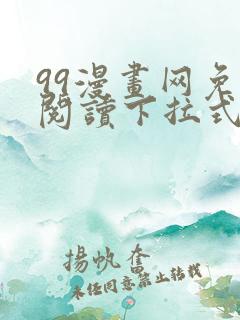 99漫畫网免
閱讀下拉式
揚帆奮
未经同意禁止转载